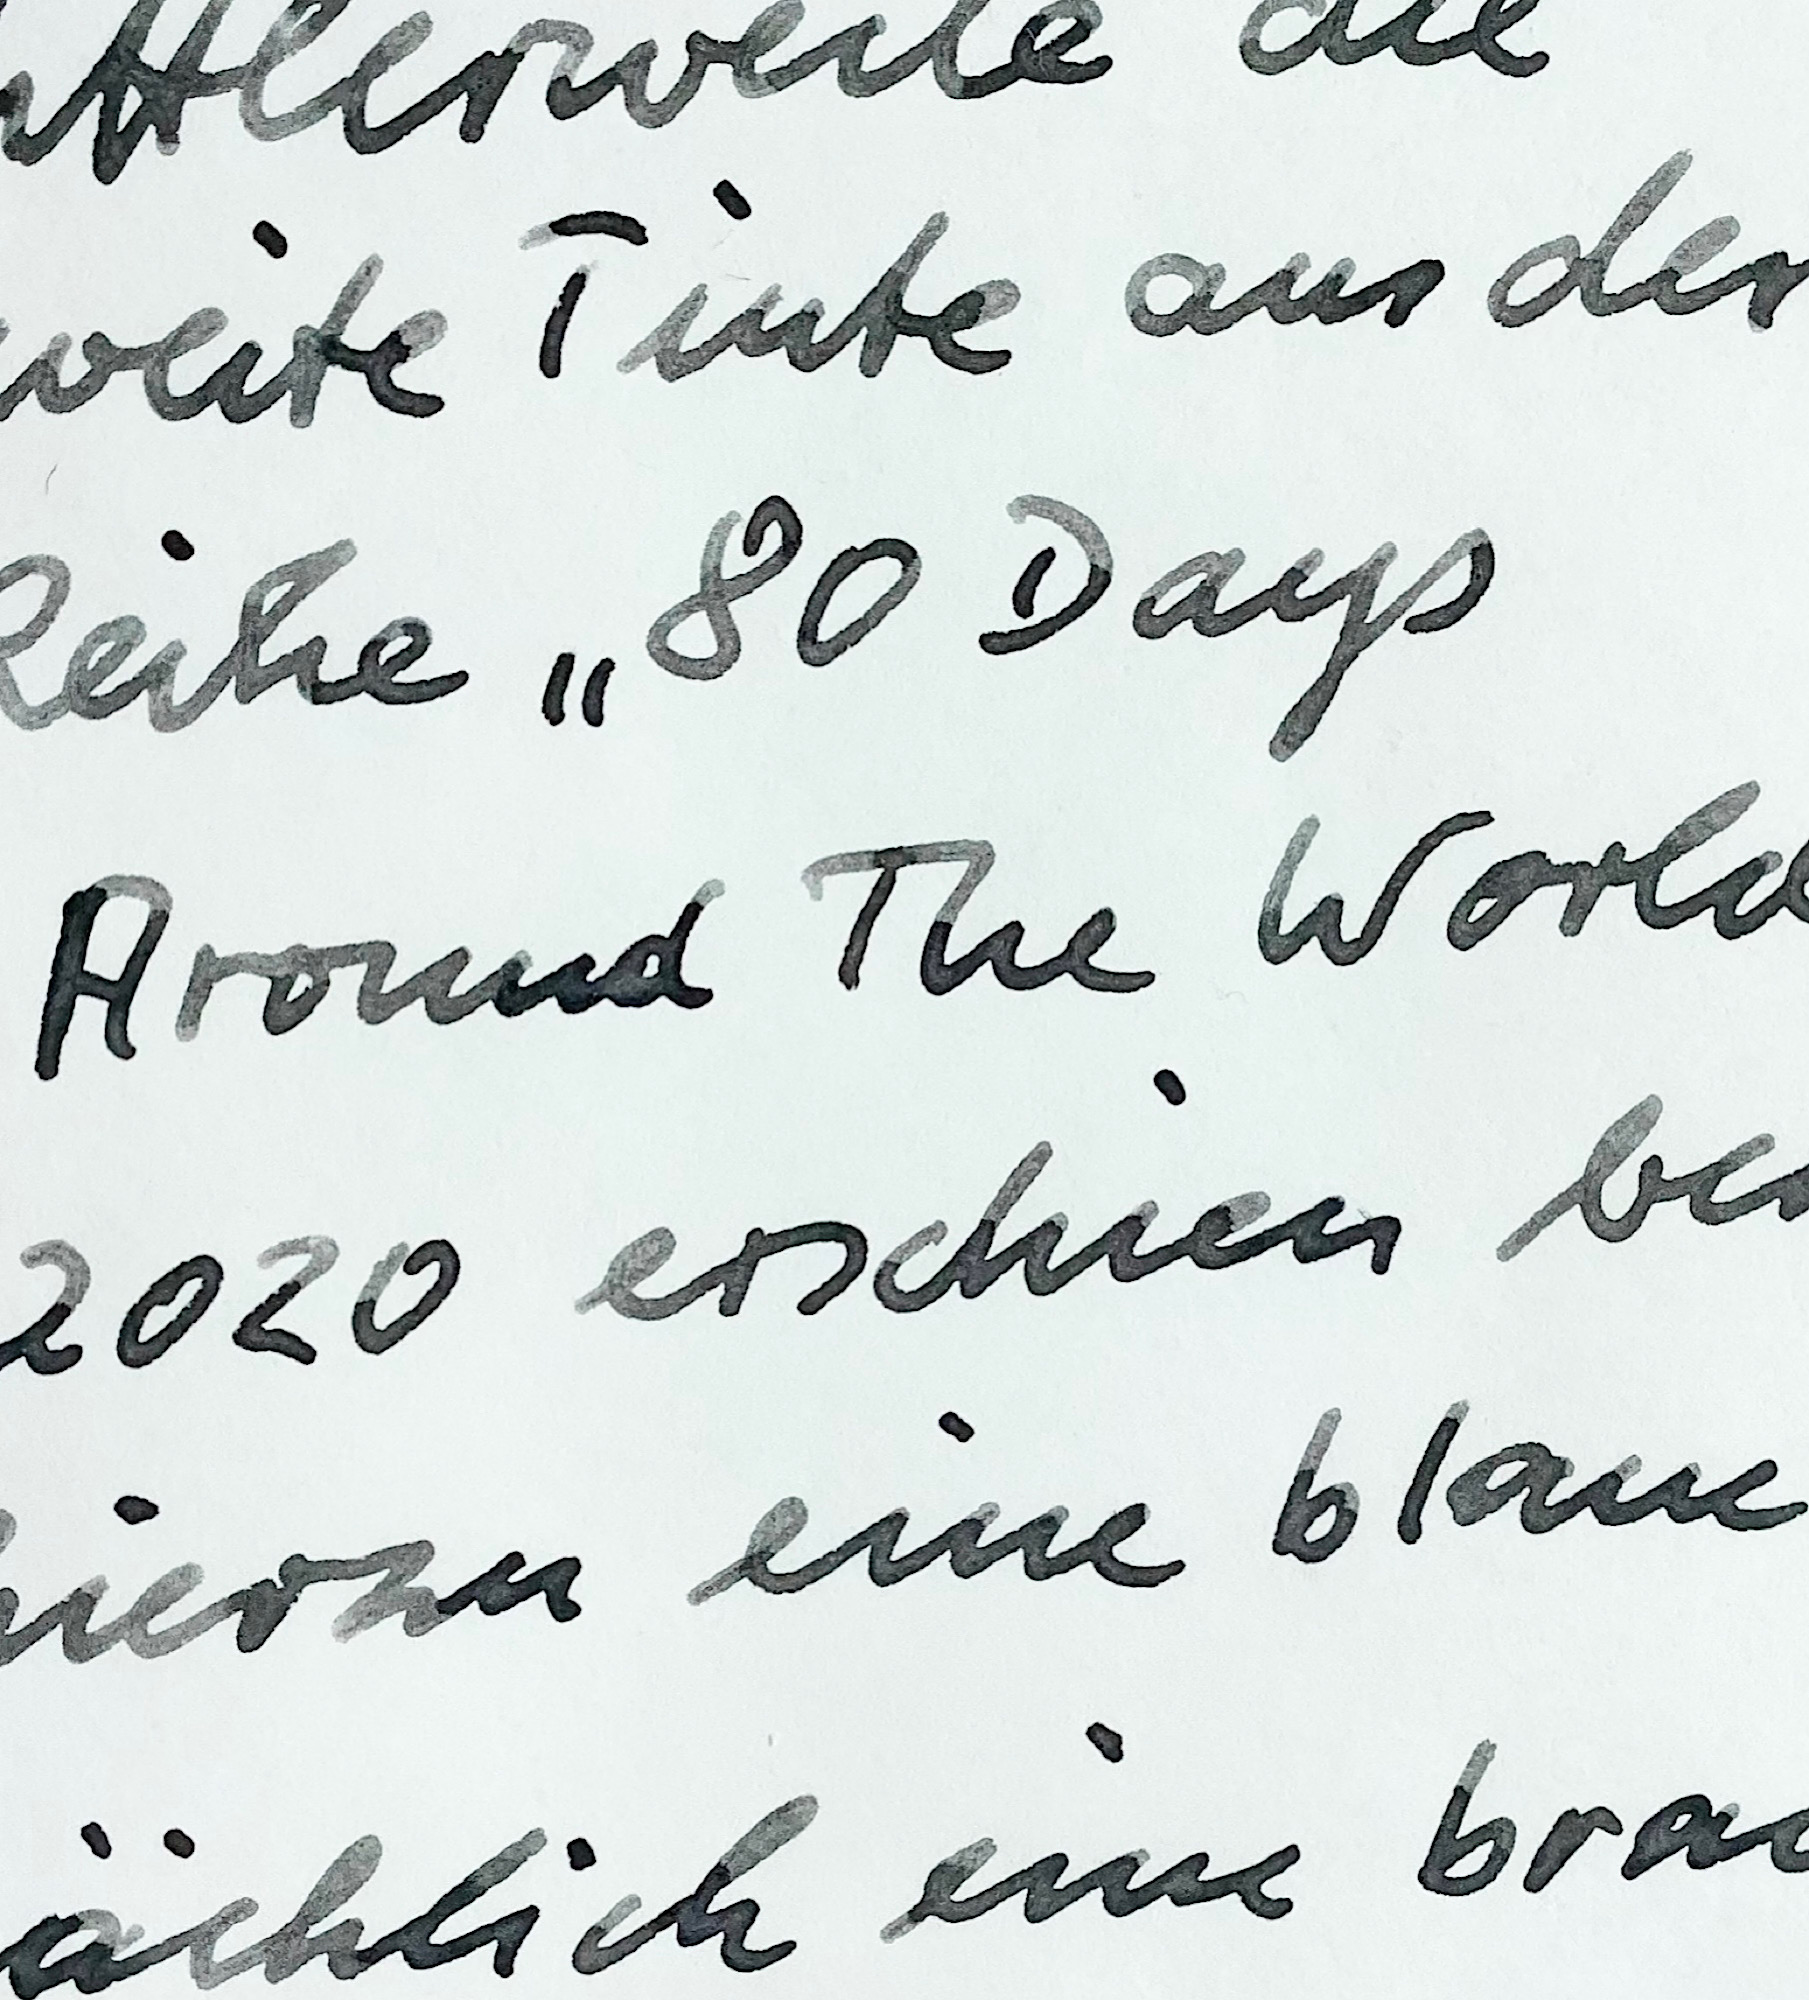 ttlerweile die
weite Tinte aus der
Reihe „80 Days
Around The World
2020 erschien be
hierzu eine blaue
ächlich eine brau